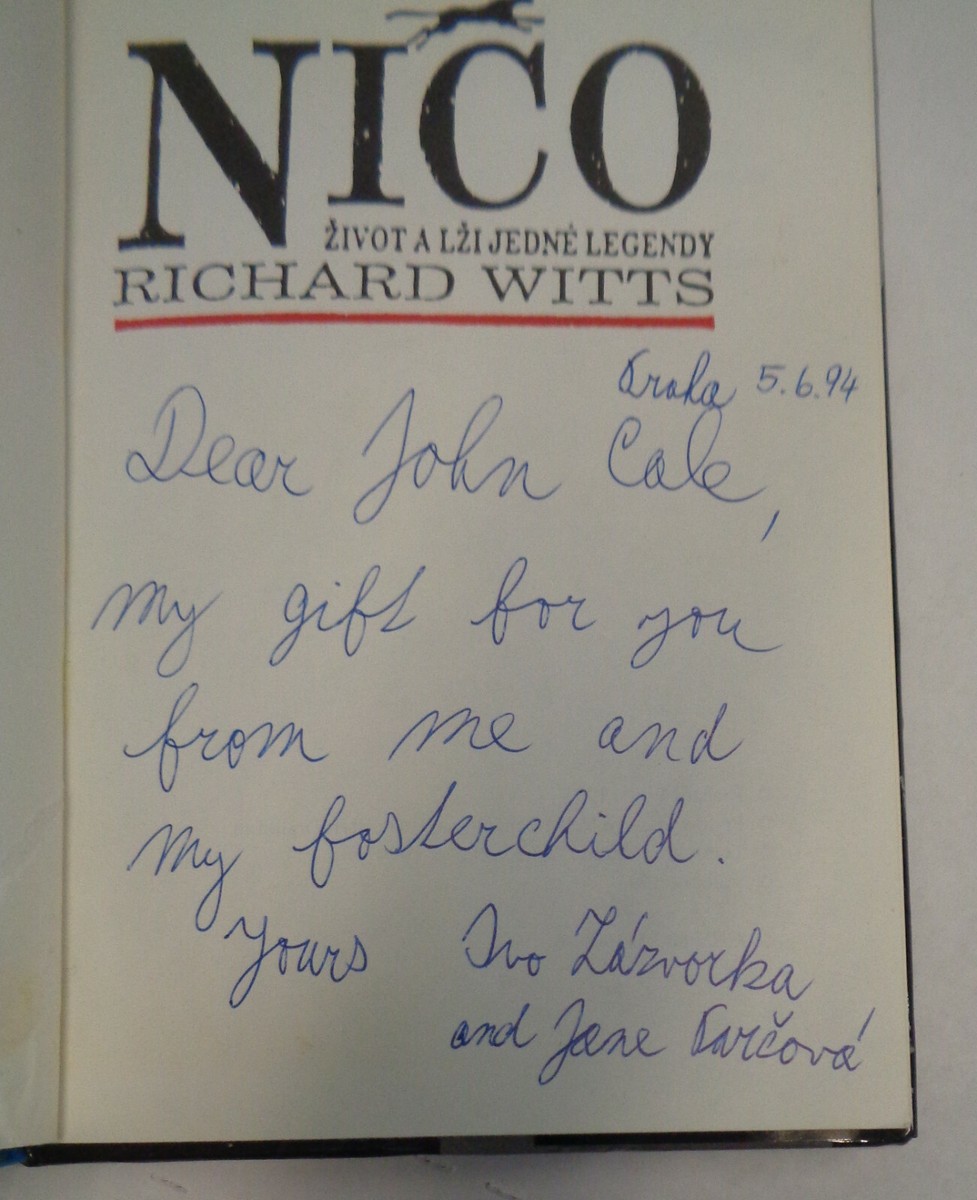 NICO
ŽIVOT A LŽI JEDNÉ LEGENDY
RICHARD WITTS
Praha 5.6.94
Dear John Cale,
my gift for you
from me and
my fosterchild.
Yours Ivo Zázvorka
and Jane